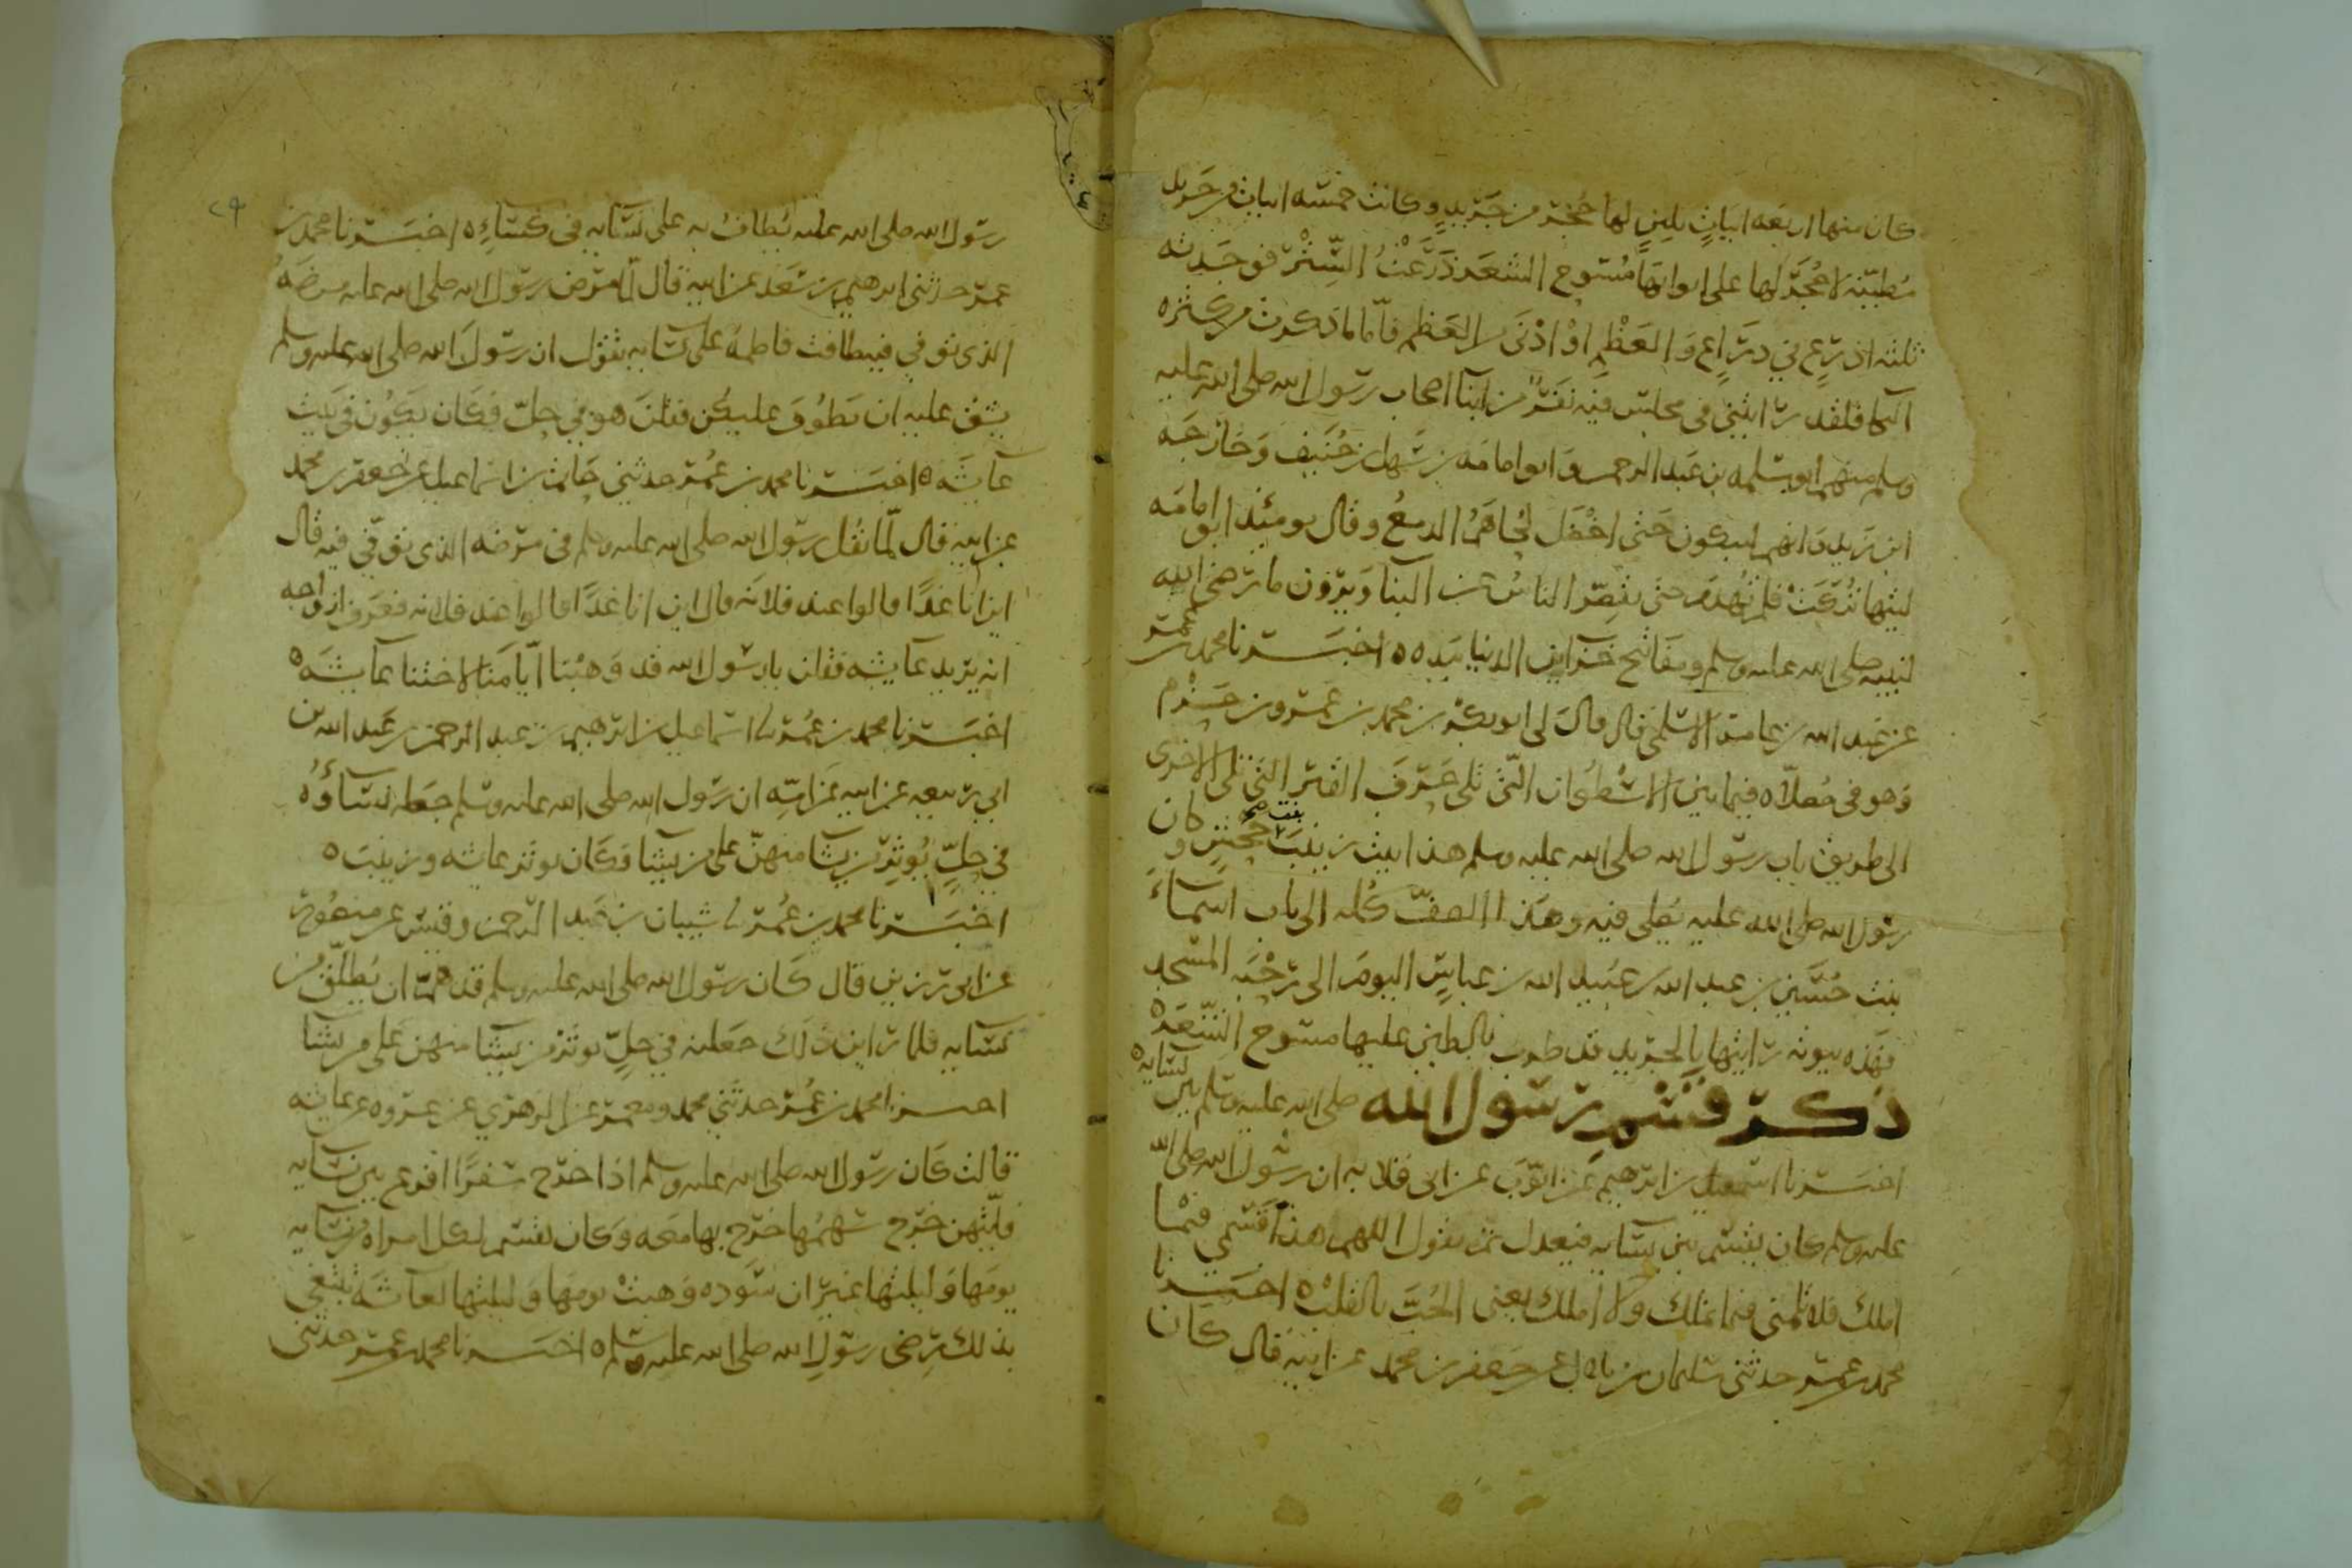 كان منها اربعه ابياتٍ بلبنٍ لها حُجَر من جَريدٍ وكانت خمسه ابيات من جَريد
مُطيّنه لا حُجَرَ لها على ابوابها مُسُوح الشعَر ذَرَعْتُ السِّتْرَ فوجدته
ثلثه اذرُعٍ في ذِرَاعٍ وَالعَظْمِ اوْ ادْنَى من العَظم فاما ما ذكرت من كثره
البكا فلقد رايتني في مجلس فيه نفَرٌ من ابنا اصحاب رسول الله صلى الله عليه
وسلم منهم ابو سلمه بن عَبد الرحمن وابو امامَه بن سَهل بن حُنَيف وَخارجَه
ابن زَيد وَانهم ليبكون حَتى اخْضَلَ لحُاهمُ الدمعُ وقال يومئذ ابو امامَه
ليتها تُرِكَتْ فلم تُهْدَمْ حتى يقصّر الناسُ عن البنا وَيرَوْن ما رَضي الله
لنبيه صلى الله عليه وسلم ومفاتيح خزاين الدنيا بيَده ه اخبَـرنا محمد بن عمر
عن عَبد الله بن عامر الاسلمي قال قال لي ابو بكر بن محمد بن عَمرو بن حَزْم
وَهو في مُصلاه فيما بين الاسطُوان التي تلي حَرفَ القبر التي تلي الاخرى
الى طريق باب رسول الله صلى الله عليه وسلم هذا بيت زينبَ بنت جحش وكان
رسول الله صلى الله عليه يُصلي فيه وهَذا الصفّ كُله الى باب اسماءَ
بنت حُسَين بن عبد الله بن عُبَيد الله بن عباسٍ اليومَ الى رَحْبَه المسْجد
فهَذه بيوته رايتها بالجريد قد طُرت بالطين عليها مسُوح الشّعَر ه
ذكر قَسْمِ رَسُول الله صلى الله عليه وسلم بين نسايه ه
اخبَـرنا اسمعيل بن ابرهيم عن ايّوبَ عن ابي قلابه ان رسُول الله صلى الله
عليه وسلم كان يقسم بين نسايه فيعدل ثم يقول اللهم هذا قَسْمي فيما
املك فلا تلمني فيما تملك وَلا املك يعني الحُبَّ بالقلب ه اخبَـرنا
محمد بن عمر حدثني سليمان بن بلال عن جَعفر بن محمد عن ابيه قال كان
٢٩
رسُول الله صلى الله عليه يُطافُ به على نسَايه في كسَاءٍ ه اخبَـرنا محمد بن
عمر حدثني ابرهيم بن سَعَد عن ابيه قال لمّا مَرض رسُول الله صلى الله عليه مرضَهُ
الذي توفي فيه طافت فاطمهُ على نسَايه تقول ان رسُولَ الله صلى الله عليه وسلم
يشق عليه ان يَطُوفَ عليكن فقلنَ هو في حِلّ فكان يكون في بَيت
عَايشَه ه اخبَـرنا محمد بن عُمَر حدثني حَاتم بن اسَماعيل عن جَعفر بن محمد
عن ابيه قال لمّا ثقُل رسُول الله صلى الله عليه وسلم في مَرَضه الذي توُفي فيه قال
اين انا غدًا قالوا عند فلانَه قال اين انا غدًا قالوا عند فلانه فعَرَف ازواجه
انه يُريد عَايشه فقلن يا رسُول الله قد وَهبْنا ايّامَنا لاختنا عَايشَه ه
اخبَـرنا محمد بن عُمَر نا اسَماعيل بن ابرهيم بن عبد الرحمن بن عَبد الله بن
ابي ربيعه عن ابيه عن امّه ان رسُول الله صلى الله عليه وسلم جعَله نسَاؤُهُ
في حِلٍّ يُوثِر من يشَا منهنّ على من يشا فكان يوثر عايشه وزينبَ ه
اخبَـرنا محمد بن عُمَر نا شيبان بن عَبد الرحمن وقيس عن منصُور
عن ابي رَزين قال كَان رسول الله صلى الله عليه وسلم قد هَمَّ ان يُطلّقَ من
نسَايه فلما راين ذلك جعَلنه في حِلٍّ يوثر من يشا منهن على من يشا
اخبـرنا محمد بن عُمَر حدثني محمد ومعمر عن الزهري عن عروه عن عايشه
قالت كان رسُول الله صلى الله عليه وسلم اذا خرَج سَفرًا اقرع بين نسَايه
فايّتهن خرَج سَهمُها خرَج بها معَه وَكان يقسم لكل امراه من نسَايه
يومَها وَليلتها غير ان سَوده وَهبتْ يومَها وَليلتها لعَايشَه تبتغي
بذلك رِضى رسُولِ الله صلى الله عليه وسلم ه اخبـرنا محمد بن عمر حدثني